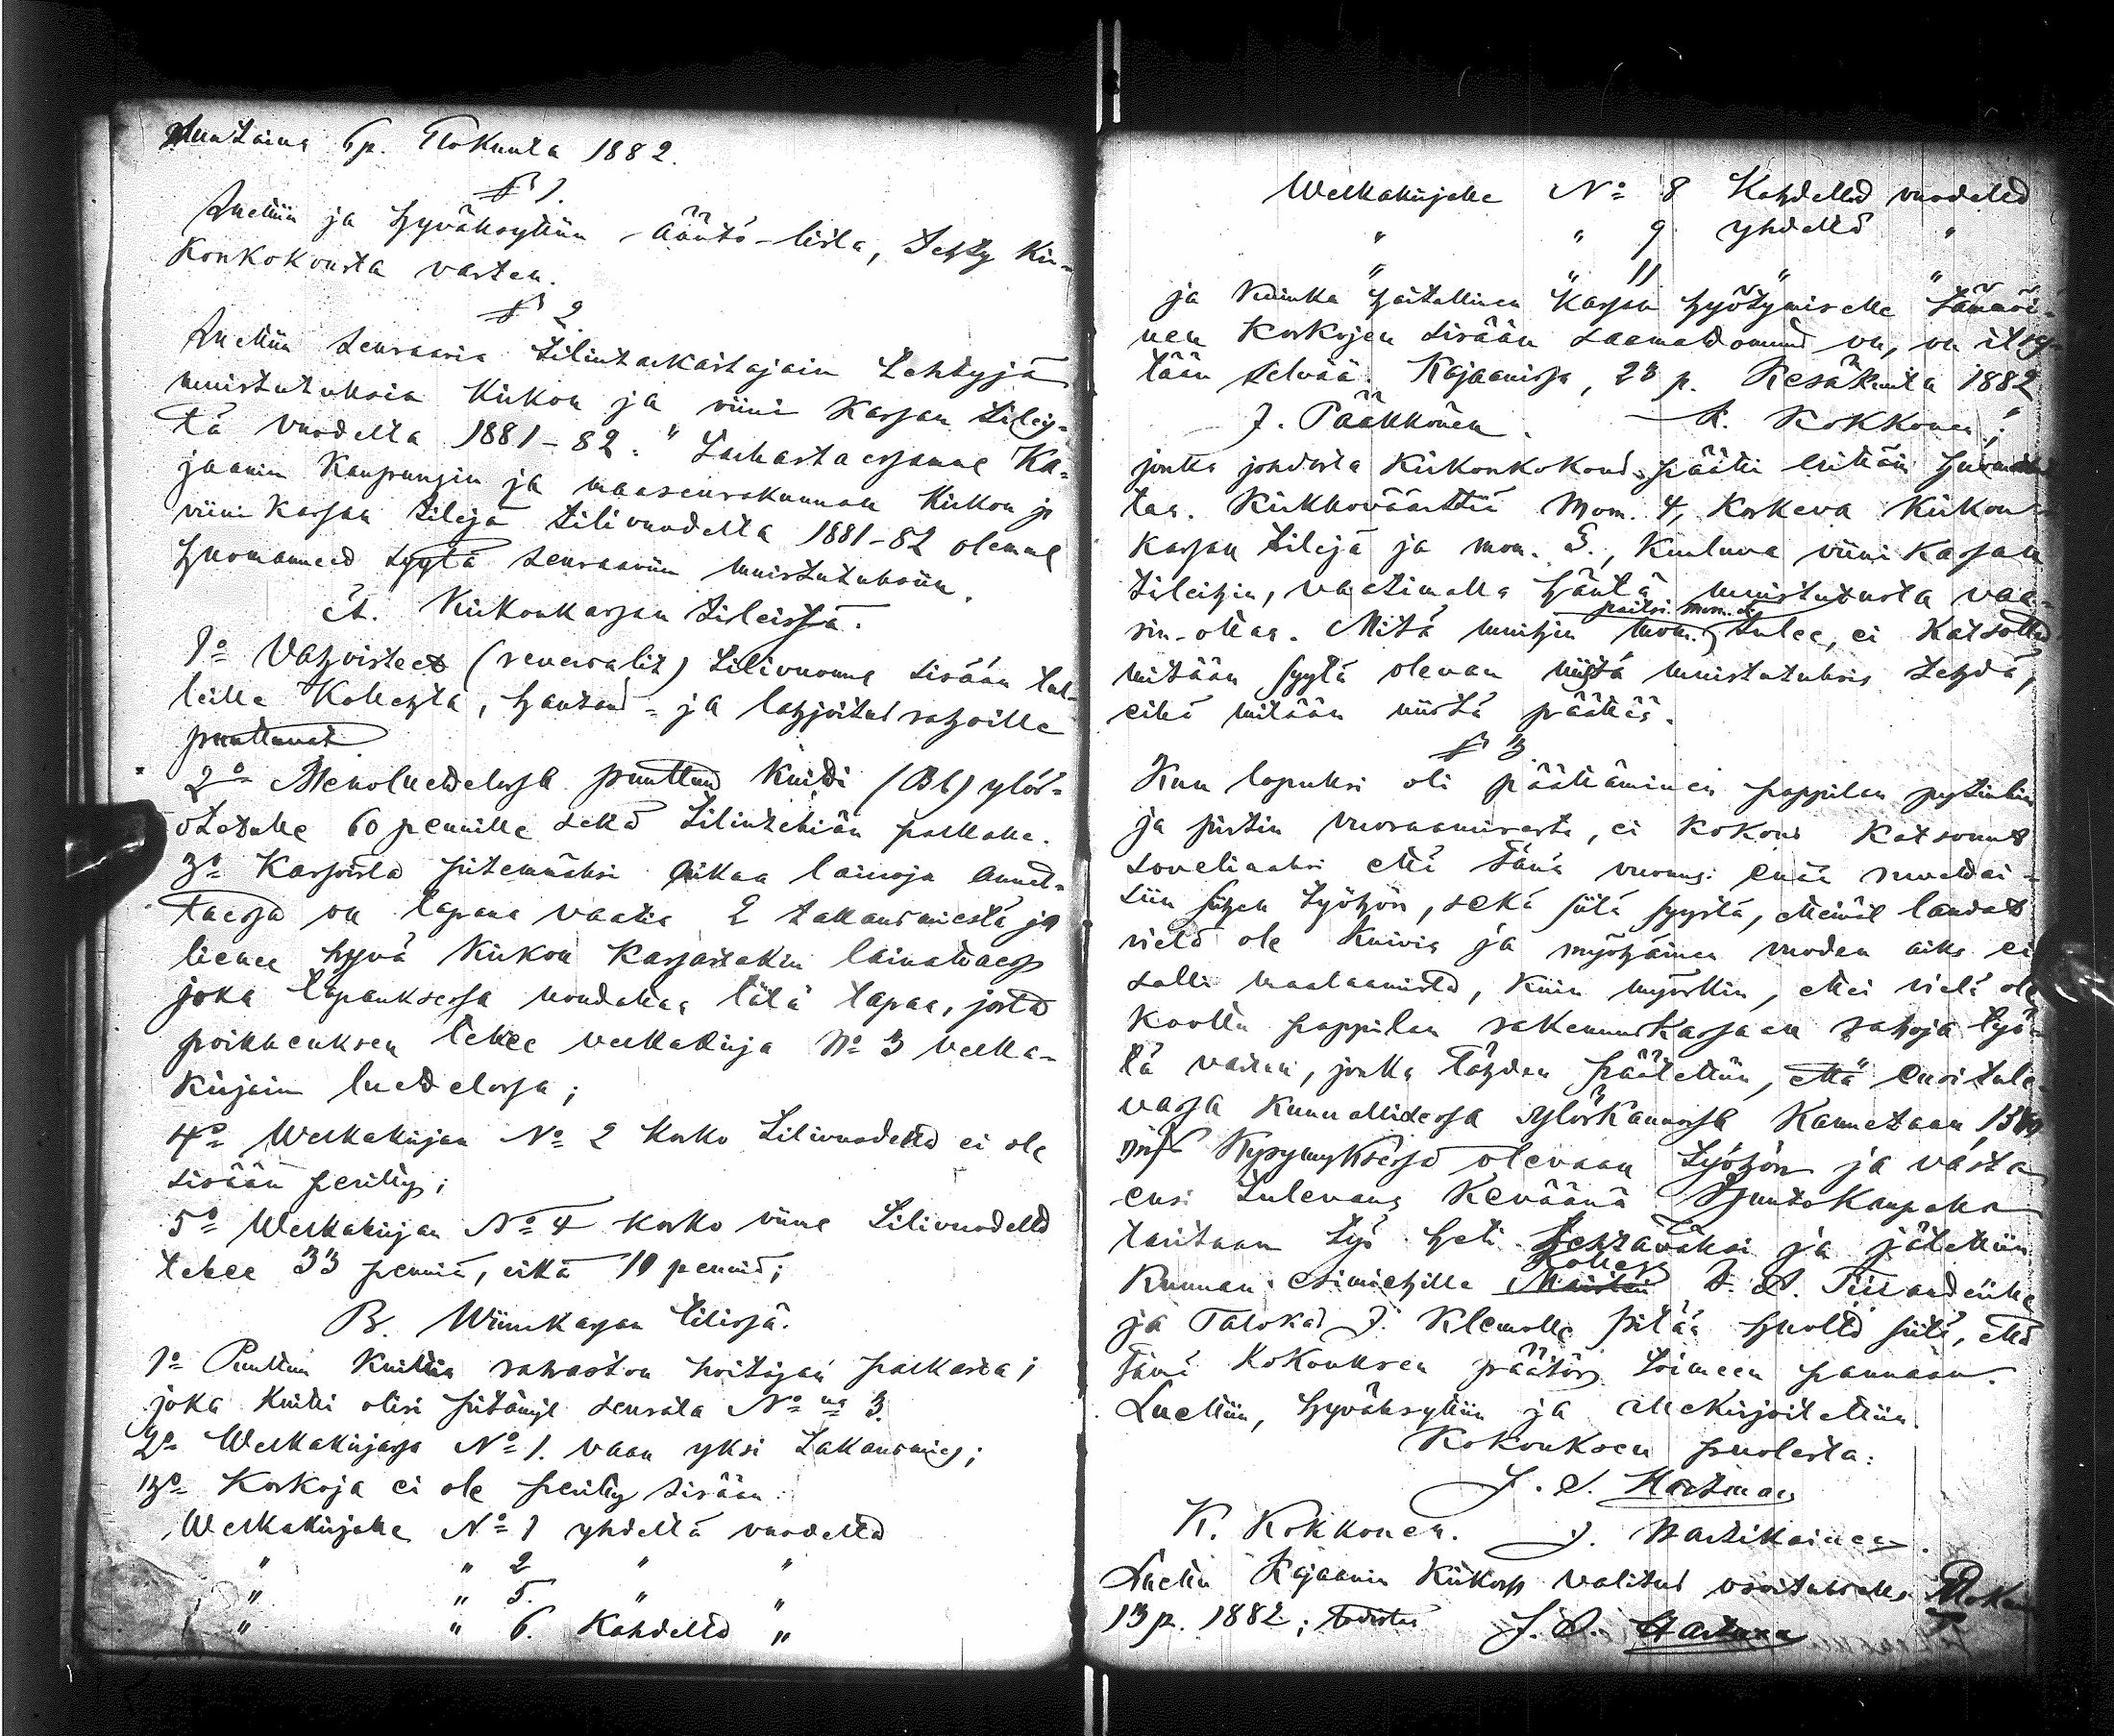 Sunntaina 6 p. Elokuuta 1882.
§ 1.
Luettiin ja hyväksyttiin ääntö-lista, tehty Kir-
konkokousta varten.
§ 2
Luettiin seuraavia tilintarkastajain tehtyjä
muistutuksia Kirkon ja viini Kassan tiley-
tä vuodelta 1881-82. "Tarkastaessamme Ka-
jaanin Kaupungin ja maaseurakunnan Kirkon ja
viini Kassan tilejä tilivuodelta 1881-82 olemme
huomanneet syytä seuraaviin muistutuksiin.
A. Kirkonkassan tileissä.
1o Vahvisteet (reversalit) tilivuonna sisään tul-
leille Kollehta, hautaus- ja lahjoitus rahoille
puuttuvat
2o Menoluettelossa puuttuu Kuitti (Bl) ylös-
otetulle 60 pennille sekä tilintekiän palkalle.
3o Kassoista pitemmäksi aikaa lainoja annet-
taessa on tapana vaatia 2 takausmiestä ja
lienee hyvä Kirkon Kassastakin lainattaessa
joka tapauksessa noudattaa tätä tapaa, josta
poikkeuksen tekee velkakirja No 3 velka-
kirjain luettelossa;
4o Welkakirjan No 2 korko tilivuodelta ei ole
sisään peritty;
5o Welkakirjan No 4 korko viime tilivuodelta
tekee 33 penniä, eikä 10 penniä;
B. Wiinikassan tilissä.
1o Puuttuu Kuittia rahaston hoitajan palkasta;
joka kuitti olisi pitänyt seurata No na 3.
2o Welkakirjassa No 1. vaan yksi takausmies;
3o Korkoja ei ole peritty sisään:
Welkakirjalle No 1 yhdeltä vuodelta
" " 2 " "
" " 5. " "
" " 6. Kahdelta "
Welkakirjalle No 8 Kahdelta vuodelta
" " 9 yhdeltä "
" " 11 " "
ja Kuinka haitallinen Kassan hyötymiselle tämmöi-
nen korkojen sisään saamattomuus on, on itses-
tään selvää. Kajaanissa, 23 p. Kesäkuuta 1882
J. Pääkkönen. K. Kokkonen;"
jonka johdosta Kirkonkokous päätti
Kirkkoväärttii Mom. 4, Koskeva Kirkon
kassan tilejä ja mom. 3., Kuuluva viini Kassan
tileihin, vaatimalla häntä muistutusta vaa-
rin-ottaa. Mitä muihin mom. paitsi mom. tulee, ei Katsottu
mitään syytä olevan niistä muistutuksia tehdä,
eikä mitään niistä päättää.
§ 3
Kun lopuksi oli päättäminen pappilan
ja pirtin vuoraamisesta, ei Kokous Katsonut
soveliaaksi että tänä vuonna enää ruvettai-
siin siihen työhön, sekä siitä syystä, etteivät laudat
vielä ole kuivia ja myöhäinen vuoden aika ei
salli maalaamista, kuin myöskin, ettei vielä ole
koottu pappilan rakennuskassaan rahoja työ-
tä varten, jonka tähden päätettiin, että ensi tule-
vassa kunnallisessa ylöskannossa Kannetaan,
Kysymyksessä olevaan työhön ja vasta
ensi tulevana Keväänä huutokaupalla
taritaan työ heti tehtäväksi ja jätettiin
Kunnan esimiehille Kolleg.
ja Talokas J. Klemolle pitää huolta siitä, että
tämä Kokouksen päätös toimeen pannaan.
Luettiin, hyväksyttiin ja allekirjoitettiin.
Kokouksen puolesta:
K. Kokkonen. J. Wartikainen.
Luettu Kajaanin Kirkossa valitus osoituksella
13 p. 1882; todistaa